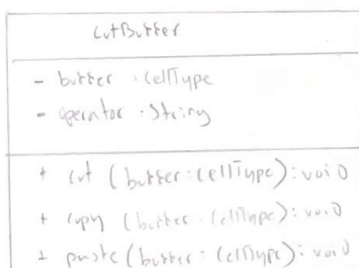 CutBuffer
- buffer : CellType
- operator : String
+ cut (buffer : CellType) : void
+ copy (buffer : CellType) : void
+ paste (buffer : CellType) : void